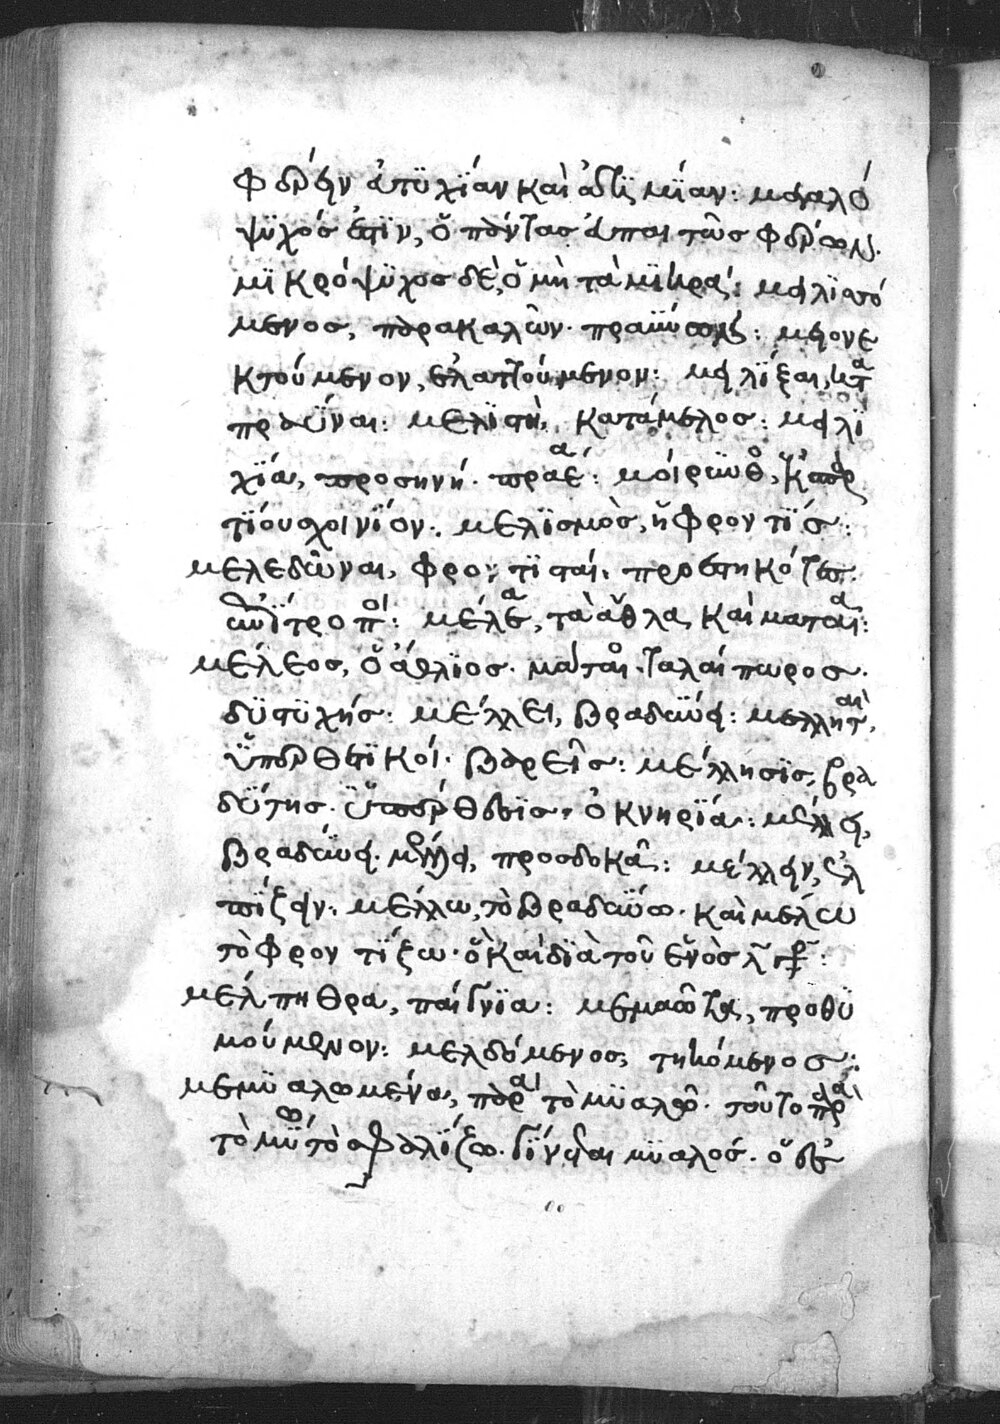 φέρειν ἀτυχίαν καὶ ἀτιμίαν: μεγαλό
ψυχός ἐστιν, ὁ πάντας ἅπαντας φέρων.
μικρόψυχος δὲ, ὁ μὴ τὰ μικρά: μειλισσό
μενος, παρακαλῶν. πραΰνων: μειονε
κτούμενον, ἐλαττούμενον: μειλίξαι,
πραΰναι: μελιστὶ, κατάμελος: μειλί
χια, προσηνῆ. πραέα:
μελισμὸς, ἡ φροντίς:
μελεδῶναι, φροντίσαι. προεστηκότες.
ἐπίτροποι: μέλεα, τὰ ἄθλα καὶ μάταια:
μέλεος, ὁ ἄθλιος. μάταιος. ταλαίπωρος.
δυστυχής: μέλλει, βραδύνει: μελληταὶ,
ὑπερθετικοί. βαρεῖς: μέλλησις, βρα
δύτης. ὑπέρθεσις. ὀκνηρία: μέλλει,
βραδύνει. προσδοκᾶ: μέλλειν, ἐλ
πίζειν: μέλλω, τὸ βραδύνω. καὶ μέλω
τὸ φροντίζω. ὃ καὶ διὰ τοῦ ἑνὸς λ γρ:
μέλπηθρα, παίγνια: μεμαῶτα, προθυ
μούμενον: μελδόμενος, τηκόμενος:
μεμυαλωμένα, παρὰ τὸ μυαλῶ. τοῦτο παρὰ
τὸ μύω τὸ σφαλίζω. γίνεται μυαλός. ὅθεν